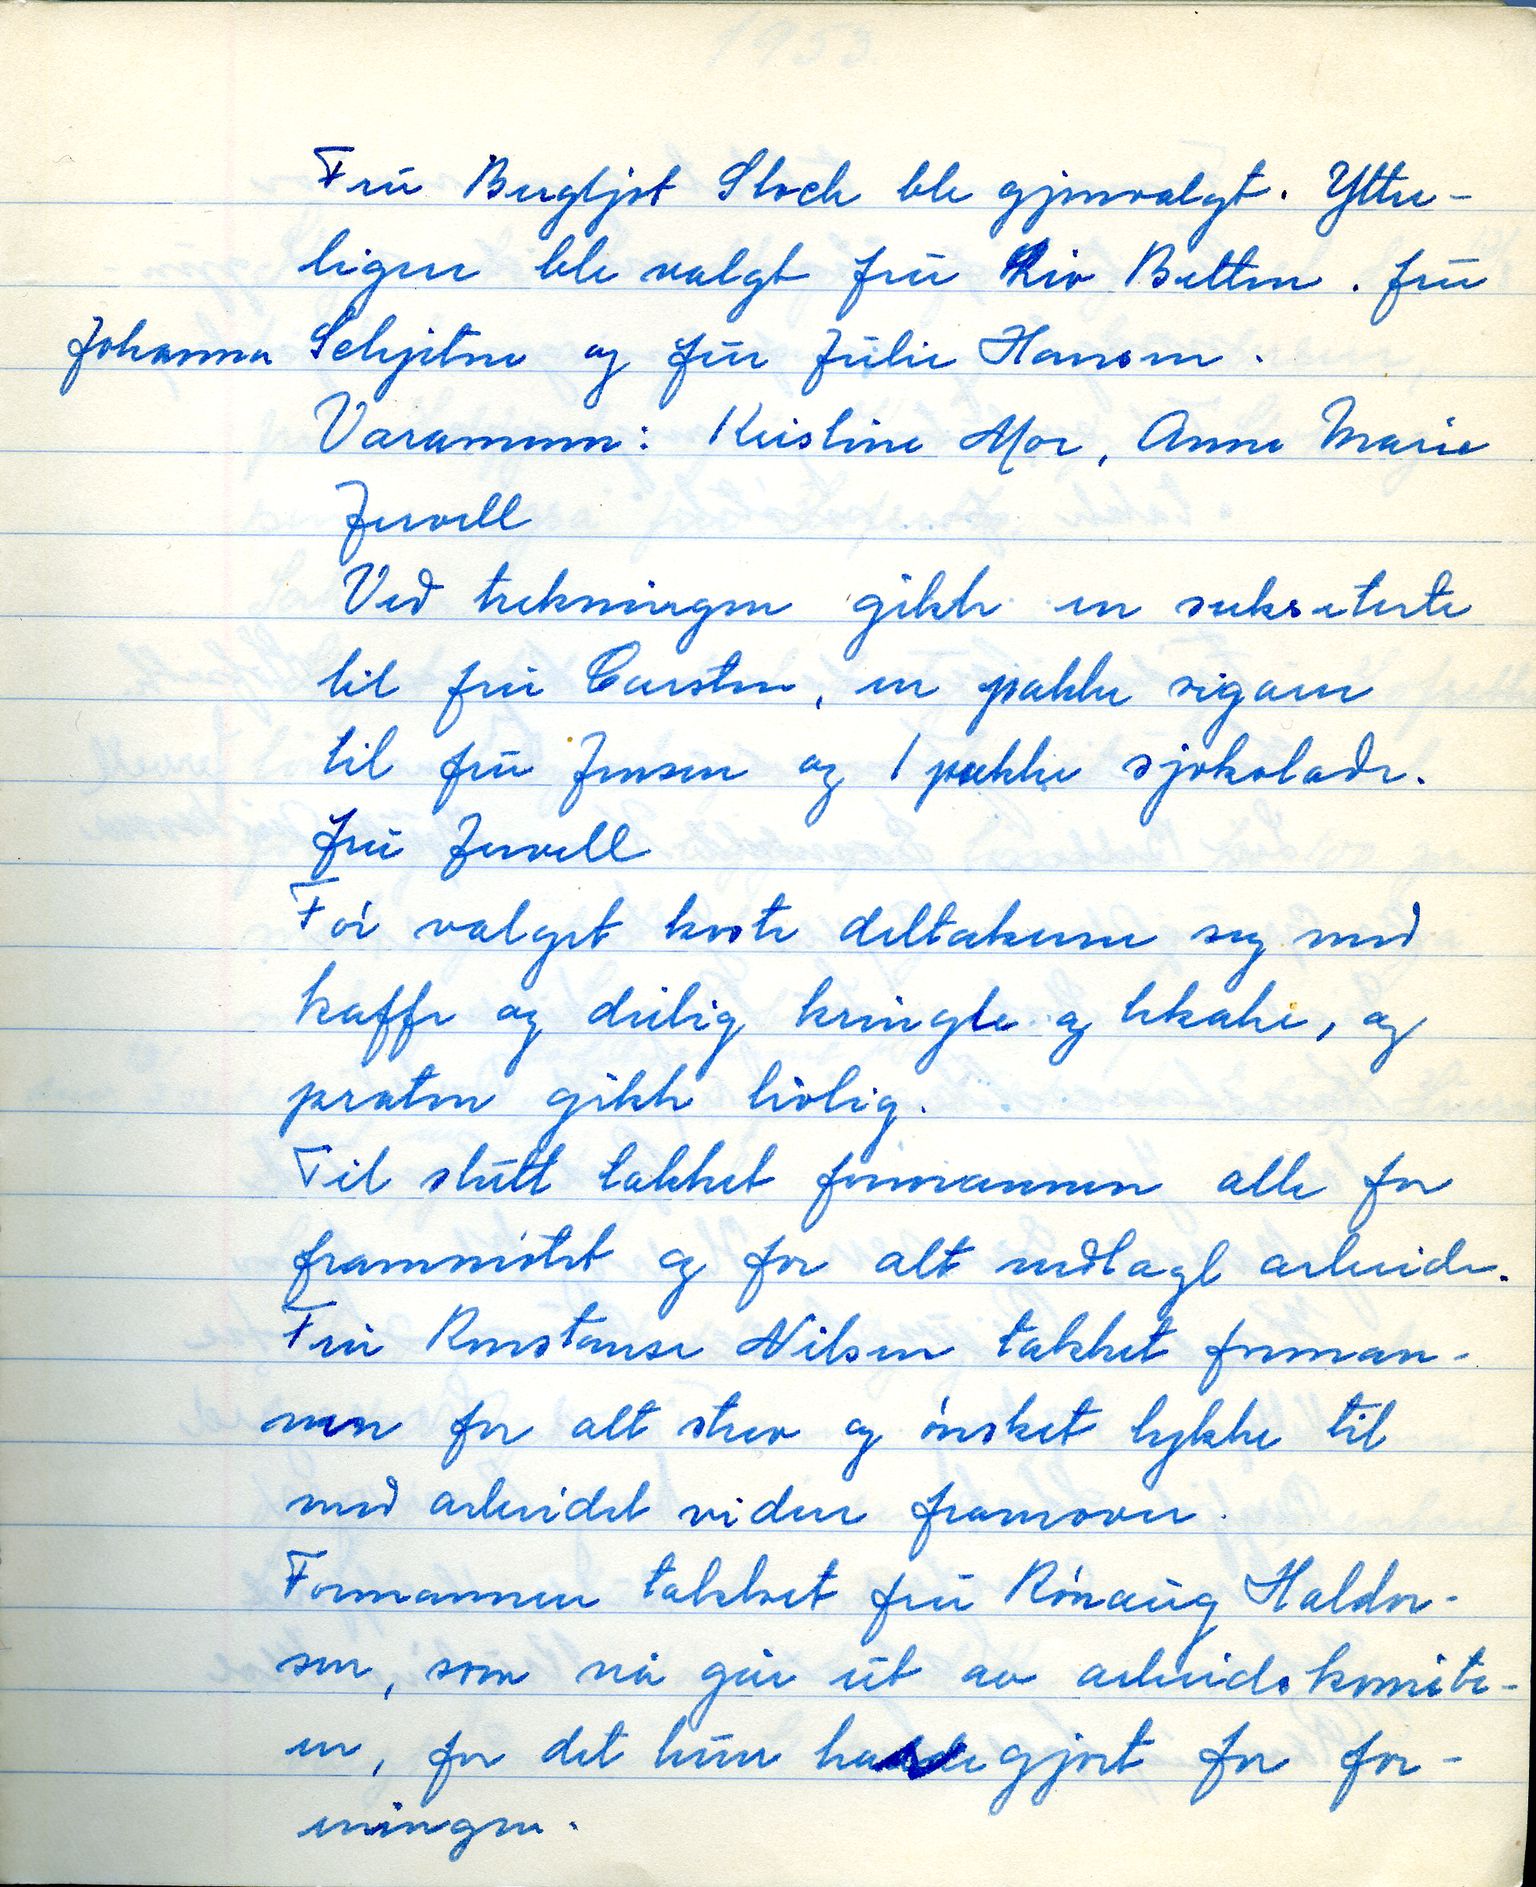 1953
Fru Bergljot Stock ble gjenvalgt. Ytter-
ligere ble valgt fru Liv Betten. fru
Johanna Schjetne og fru Julie Hansen.
Varamenn: Kristine Moe, Anne Marie
Jervell
Ved trekningen gikk en sukseterte
til fru Carsten, en pakke sigarer
til fru Jensen og 1 pakke sjokolade.
fru Jervell
Før valget koste deltakerne seg med
kaffe og deilig kringle og hkake, og
praten gikk livlig.
Til slutt takket formannen alle for
frammøtet og for alt nedlagt arbeide.
Fru Konstanse Nilsen takket forman-
nen for alt strev og ønsket lykke til
med arbeidet videre framover.
Formannen takket fru Rønaug Haldor-
sen, som nå går ut av arbeidskomite-
en, for det hun hadde gjort for for-
eningen.